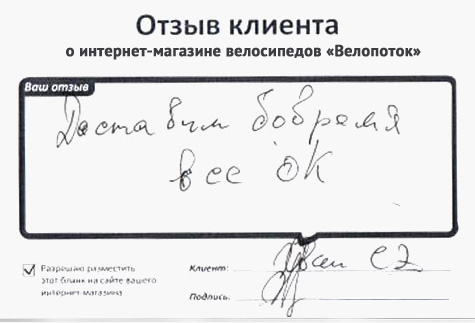 Отзыв клиента
о интернет-магазине велосипедов «Велопоток»
Ваш отзыв
Доставили вовремя
все ОК
Разрешаю разместить
этот бланк на сайте вашего
интернет-магазина
Клиент:
Подпись: